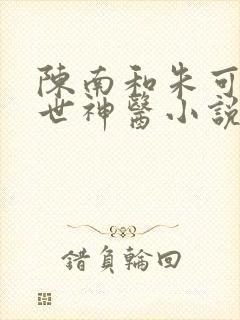 陳南和朱可
世神醫小説
錯負輪回